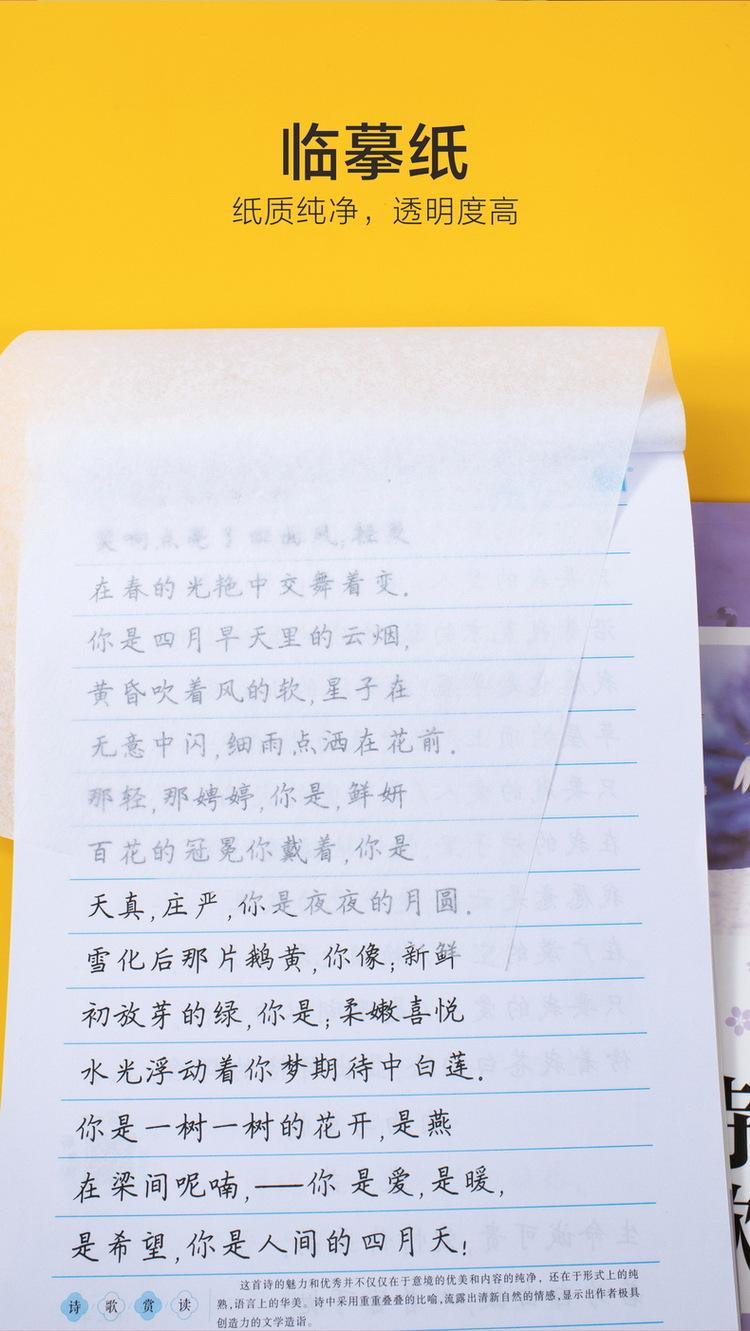 临摹纸
纸质纯净，透明度高
笑响点亮了四面风,轻灵
在春的光艳中交舞着变.
你是四月早天里的云烟,
黄昏吹着风的软,星子在
无意中闪,细雨点洒在花前.
那轻,那娉婷,你是,鲜妍
百花的冠冕你戴着,你是
天真,庄严,你是夜夜的月圆.
雪化后那片鹅黄,你像;新鲜
初放芽的绿,你是;柔嫩喜悦
水光浮动着你梦期待中白莲.
你是一树一树的花开,是燕
在梁间呢喃,——你是爱,是暖,
是希望,你是人间的四月天!
诗歌赏读
这首诗的魅力和优秀并不仅仅在于意境的优美和内容的纯净，还在于形式上的纯
熟,语言上的华美。诗中采用重重叠叠的比喻,流露出清新自然的情感,显示出作者极具
创造力的文学造诣。